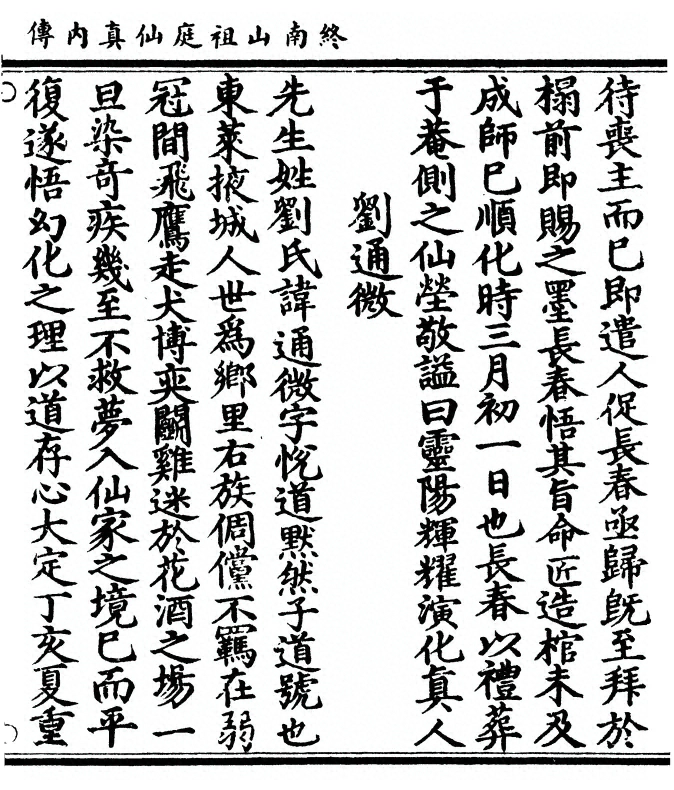 終南山祖庭仙真內傳
待喪主而已即遣人促長春亟歸既至拜於
榻前即賜之墨長春悟其旨命匠造棺未及
成師已順化時三月初一日也長春以禮葬
于菴側之仙塋敬謚曰靈陽輝耀演化真人
劉通微
先生姓劉氏諱通微字悅道默然子道號也
東萊掖城人世爲鄉里右族倜儻不羈在弱
冠間飛鷹走犬博奕鬭雞迷於花酒之場一
旦染奇疾幾至不救夢入仙家之境已而平
復遂悟幻化之理以道存心大定丁亥夏重